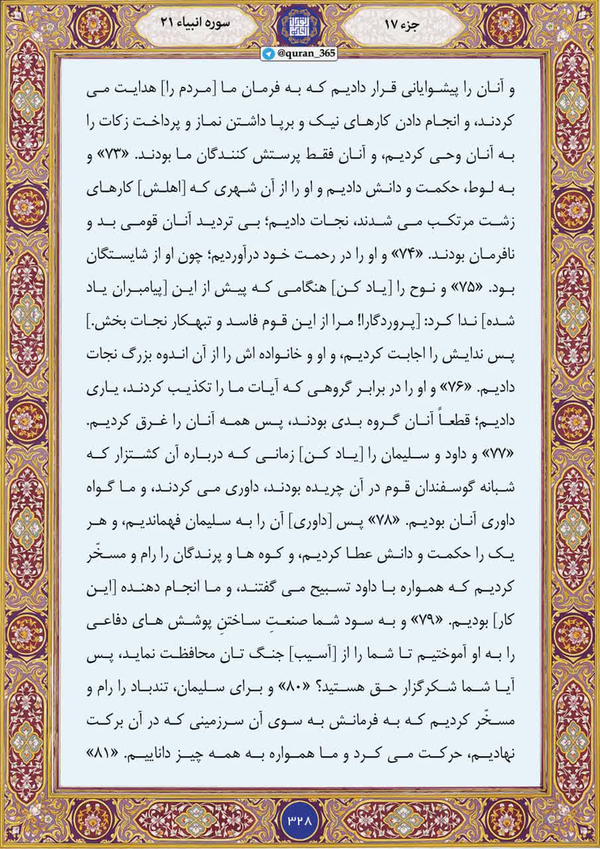 جزء ۱۷
سوره انبیاء ۲۱
@quran_365
و آنـان را پیشـوایانی قـرار دادیـم کـه بـه فرمـان مـا [مـردم را] هدایت مـی
کردنـد، و انجـام دادن کارهای نیـک و برپا داشـتن نماز و پرداخـت زکات را
بـه آنـان وحـی کردیـم، و آنـان فقـط پرسـتش کننـدگان مـا بودنـد. «۷۳» و
به لـوط، حکمـت و دانش دادیـم و او را از آن شـهری که [اهلـش] کارهای
زشـت مرتکـب مـی شـدند، نجـات دادیـم؛ بـی تردیـد آنـان قومـی بـد و
نافرمان بودنـد. «۷۴» و او را در رحمـت خـود درآوردیـم؛ چون او از شایسـتگان
بـود. «۷۵» و نـوح را [یـاد کـن] هنگامـی کـه پیـش از ایـن [پیامبـران یـاد
شـده] نـدا کـرد: [پـروردگارا! مـرا از ایـن قـوم فاسـد و تبهـکار نجات بخش.]
پـس ندایـش را اجابـت کردیـم، و او و خانـواده اش را از آن انـدوه بـزرگ نجات
دادیـم. «۷۶» و او را در برابـر گروهـی کـه آیـات مـا را تکذیـب کردنـد، یـاری
دادیـم؛ قطعـاً آنـان گـروه بـدی بودنـد، پـس همـه آنـان را غـرق کردیـم.
«۷۷» و داود و سـلیمان را [یـاد کـن] زمانـی کـه دربـاره آن کشـتزار کـه
شـبانه گوسـفندان قـوم در آن چریـده بودنـد، داوری مـی کردنـد، و مـا گـواه
داوری آنـان بودیـم. «۷۸» پـس [داوری] آن را بـه سـلیمان فهماندیـم، و هـر
یـک را حکمـت و دانـش عطـا کردیـم، و کـوه هـا و پرنـدگان را رام و مسـخّر
کردیـم کـه همـواره بـا داود تسـبیح مـی گفتنـد، و مـا انجـام دهنـده [ایـن
کار] بودیـم. «۷۹» و بـه سـود شـما صنعـتِ سـاختنِ پوشـش هـای دفاعـی
را بـه او آموختیـم تـا شـما را از [آسـیب] جنـگ تـان محافظـت نمایـد، پـس
آیـا شـما شـکرگزار حـق هسـتید؟ «۸۰» و بـرای سـلیمان، تندبـاد را رام و
مسـخّر کردیـم کـه بـه فرمانـش بـه سـوی آن سـرزمینی کـه در آن برکـت
نهادیـم، حرکـت مـی کـرد و مـا همـواره بـه همـه چیـز داناییـم. «۸۱»
۳۲۸